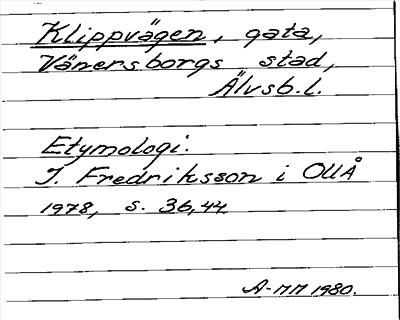 Klippvägen, gata,
Vänersborgs stad,
Älvsb. l.
Etymologi:
I. Fredriksson i OUÅ
1978, s. 36, 44
1980.